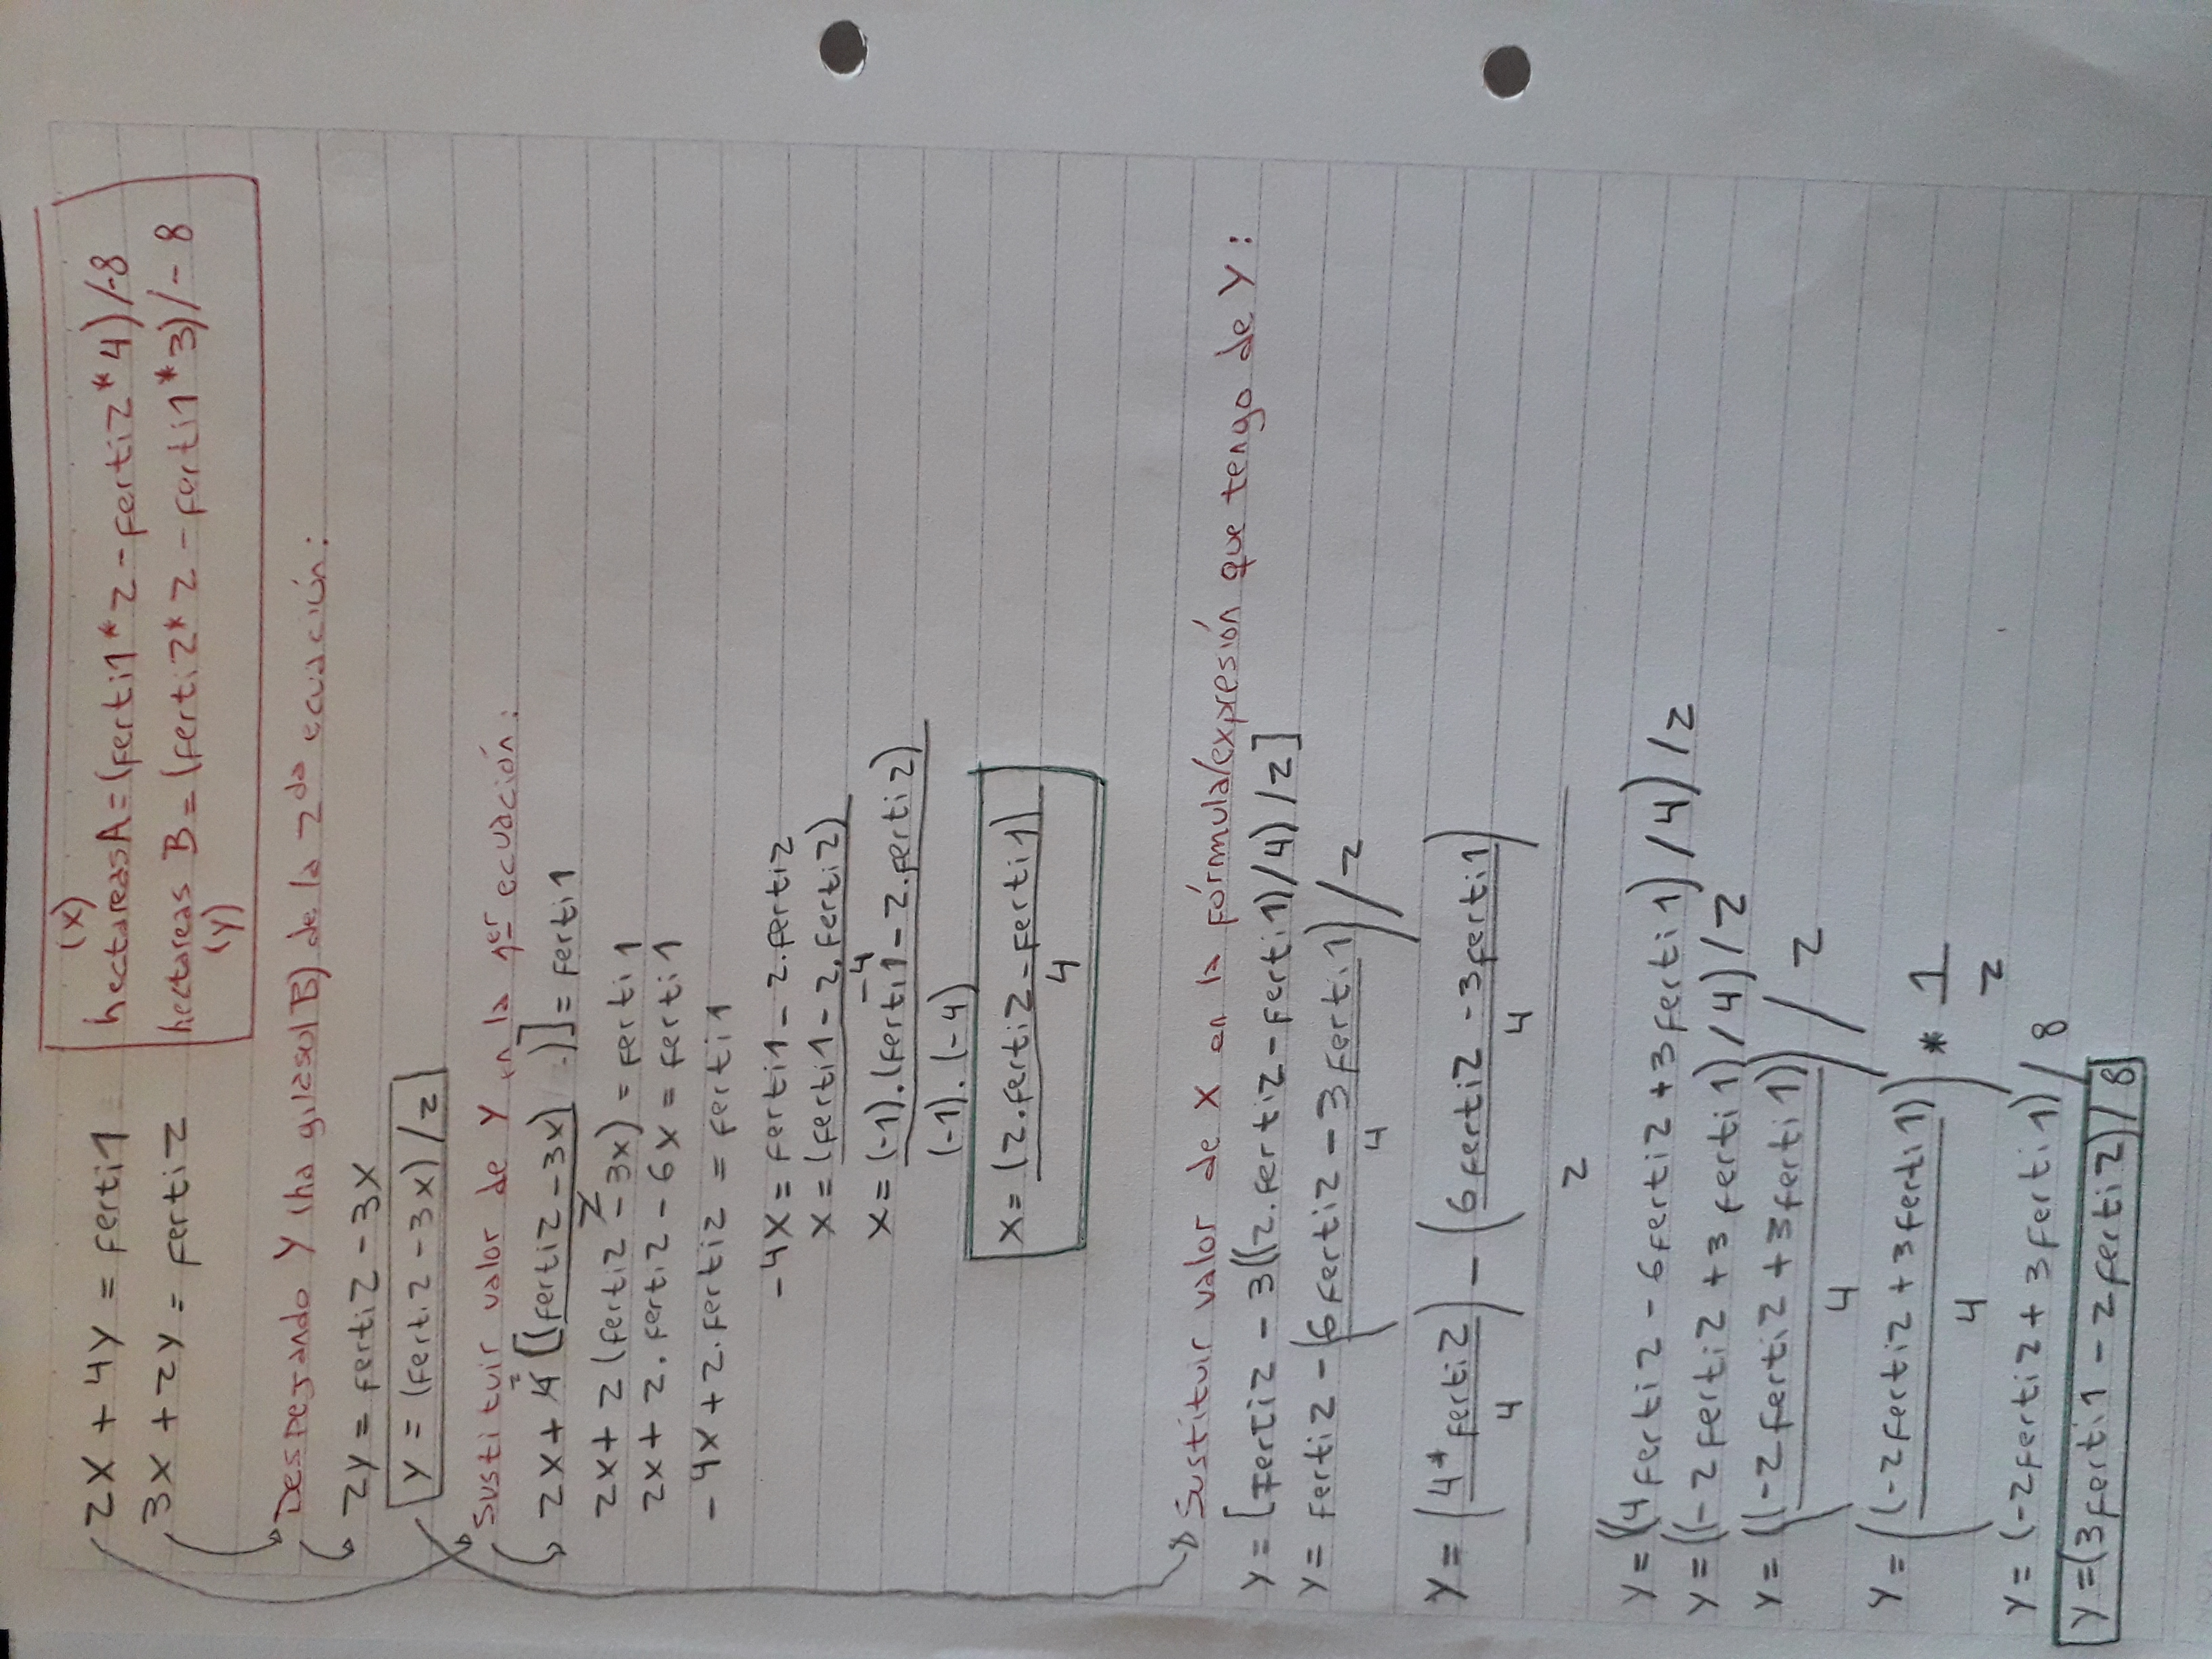 2x + 4y = ferti1
3x + 2y = ferti2
(x)
hectareasA = (ferti1 * 2 - ferti2 * 4) /-8
hectareas B = (ferti2 * 2 - ferti1 * 3) / - 8
(y)
Despejando Y (ha girasol B) de la 2da ecuación:
2y = ferti2 - 3x
y = (ferti2 - 3x) / 2
Sustituir valor de Y en la 1er ecuación:
2
2x + 4 [(ferti2 - 3x) )] = ferti1
2
2x + 2 (ferti2 - 3x) = ferti1
2x + 2. ferti2 - 6x = ferti1
- 4x + 2. ferti2 = ferti1
- 4x = ferti1 - 2. ferti2
x = (ferti1 - 2. ferti2)
-4
x = (-1). (ferti1 - 2. ferti2)
(-1). (-4)
x = (2. ferti2 - ferti1)
4
Sustituir valor de X en la fórmula/expresión que tengo de Y:
y = [ferti2 - 3((2. ferti2 - ferti1) / 4) / 2]
y = ferti2 - (6 ferti2 - 3 ferti1) / 2
4
y = (4* ferti2) - (6 ferti2 - 3 ferti1)
4 4
2
y = ((4 ferti2 - 6 ferti2 + 3 ferti1) / 4) / 2
y = ((- 2 ferti2 + 3 ferti1) / 4) / 2
y = ((-2 ferti2 + 3 ferti1)) / 2
4
y = ((-2 ferti2 + 3 ferti1)) * 1
4 2
y = (-2 ferti2 + 3 ferti1) / 8
y = (3 ferti1 - 2 ferti2) / 8